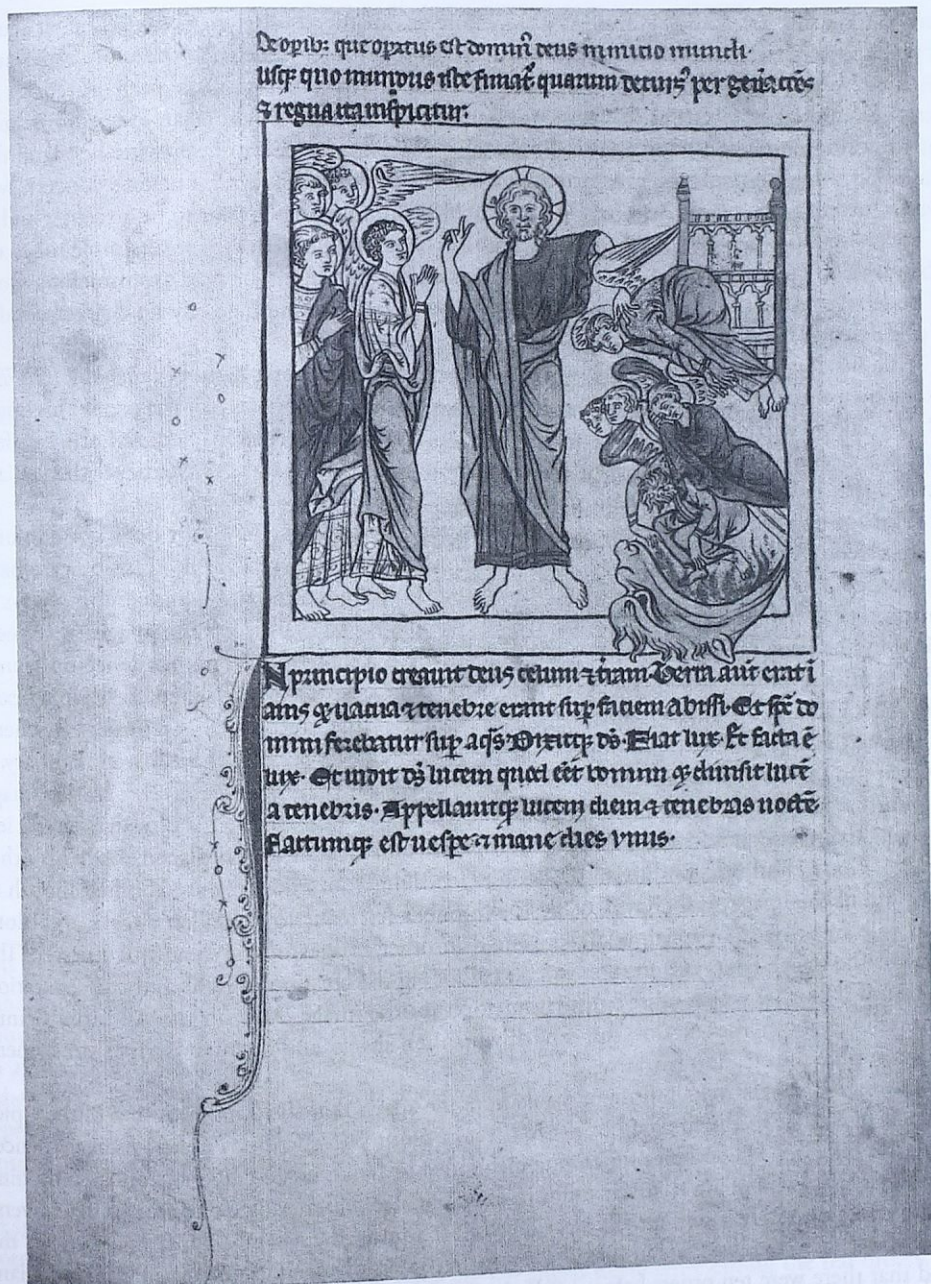 De opib: que opatus est domin̄ deus in inicio mundi.
usq; quo mundus iste finiat̄ quarum decurs᾽ per gen̄acōes
⁊ regna ita inspicitur.
N principio creauit deus celum ⁊ tr̄am. Terra aut̄ erat ī
anis ⁊ uacua ⁊ tenebre erant sup faciem abissi. Et sp̄c do
mini ferebatur sup aq̄s. Dixitq; ds̄. Fiat lux. Et facta ē
lux. Et uidit ds̄ lucem quod eēt bonum ⁊ diuisit lucē
a tenebris. Appellauitq; lucem diem ⁊ tenebras noctē.
Factumq; est uespe ⁊ mane dies vnus.